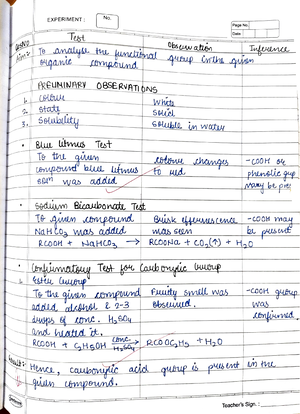 EXPERIMENT :
No.
Page No.
Date
Test Observation Inference
Aim: To analyse the functional group in the given
organic compound
PRELIMINARY OBSERVATIONS
1. Colour White
2. State Solid
3. Solubility Soluble in water
• Blue litmus Test
To the given colour changes -COOH or
compound blue litmus to red phenolic grp
was added may be
• Sodium Bicarbonate Test
To given compound Brisk effervescence -COOH may
NaHCO3 was added was seen be present
RCOOH + NaHCO3 → RCOONa + CO2(↑) + H2O
• Confirmatory Test for Carboxylic Group
To the given compound Fruity smell was -COOH group
added alcohol & 2-3 observed. was
drops of conc. H2SO4 confirmed.
and heated it.
RCOOH + C2H5OH conc. H2SO4 → RCOOC2H5 + H2O
Result: Hence, carboxylic acid group is present in the
given compound.
Teacher's Sign.: